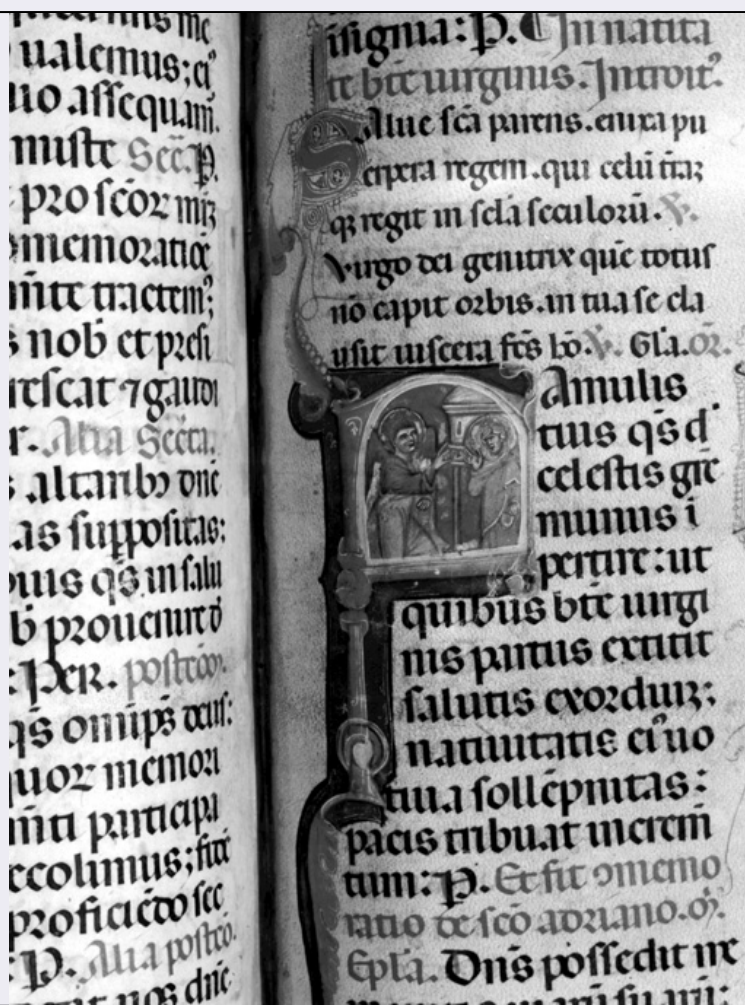 ualemus; ei
uo assequam̄.
muste Sec̄. P.
pro sc̄oꝝ
̄memoratiōe
n̄te tractem᷒;
nob̄ et presti
rescat ⁊ gaudi
r. Alia Sec̄ta.
altarib᷒ dn̄e
as suppositas:
uis qs̄ in salu
b̄ prouenire
Per. postcōo.
qs̄ omīps̄ deus:
uor memori
nti participa
ecolimus;
proficiēdo sec
P. Alia postcō.
nos dn̄e
isigma: P. ¶ In natiui
te bt̄e uirginis. Introit᷒.
Salue sc̄a parens. enixa pu
erpera regem. qui celū t̄rāꝫ
qꝫ regit in sc̄la seculorū. V̄.
Virgo dei genitrix quē totus
nō capit orbis. in tua se cla
usit uiscera fc̄s hō. V̄. Gl̄a. oꝛ̄.
Famulis
tuis qs̄ d᷒
celestis gr̄e
munus ī
pertire: ut
quibus bt̄e uirgi
nis partus extitit
salutis exordiuꝫ;
natiuitatis ei᷒ uo
tiua sollēpnitas:
pacis tribuat increm̄
tum: P. Et fit ꝯmemo
ratio de sc̄o adriano. oꝛ̄.
Ep̄la. Dn̄s possedit me